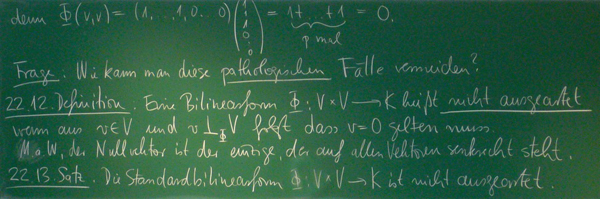 denn Φ(v,v) = (1, ..., 1, 0 ... 0) (1 ⋮ 1 0 ⋮ 0) = 1+ ... +1 = 0.
p mal
Frage: Wie kann man diese pathologischen Fälle vermeiden?
22.12. Definition: Eine Bilinearform Φ: V × V → K heißt nicht ausgeartet
wenn aus v ∈ V und v ⊥_Φ V folgt dass v = 0 gelten muss.
M.a.W. der Nullvektor ist der einzige, der auf allen Vektoren senkrecht steht.
22.13. Satz. Die Standardbilinearform Φ: V × V → K ist nicht ausgeartet.